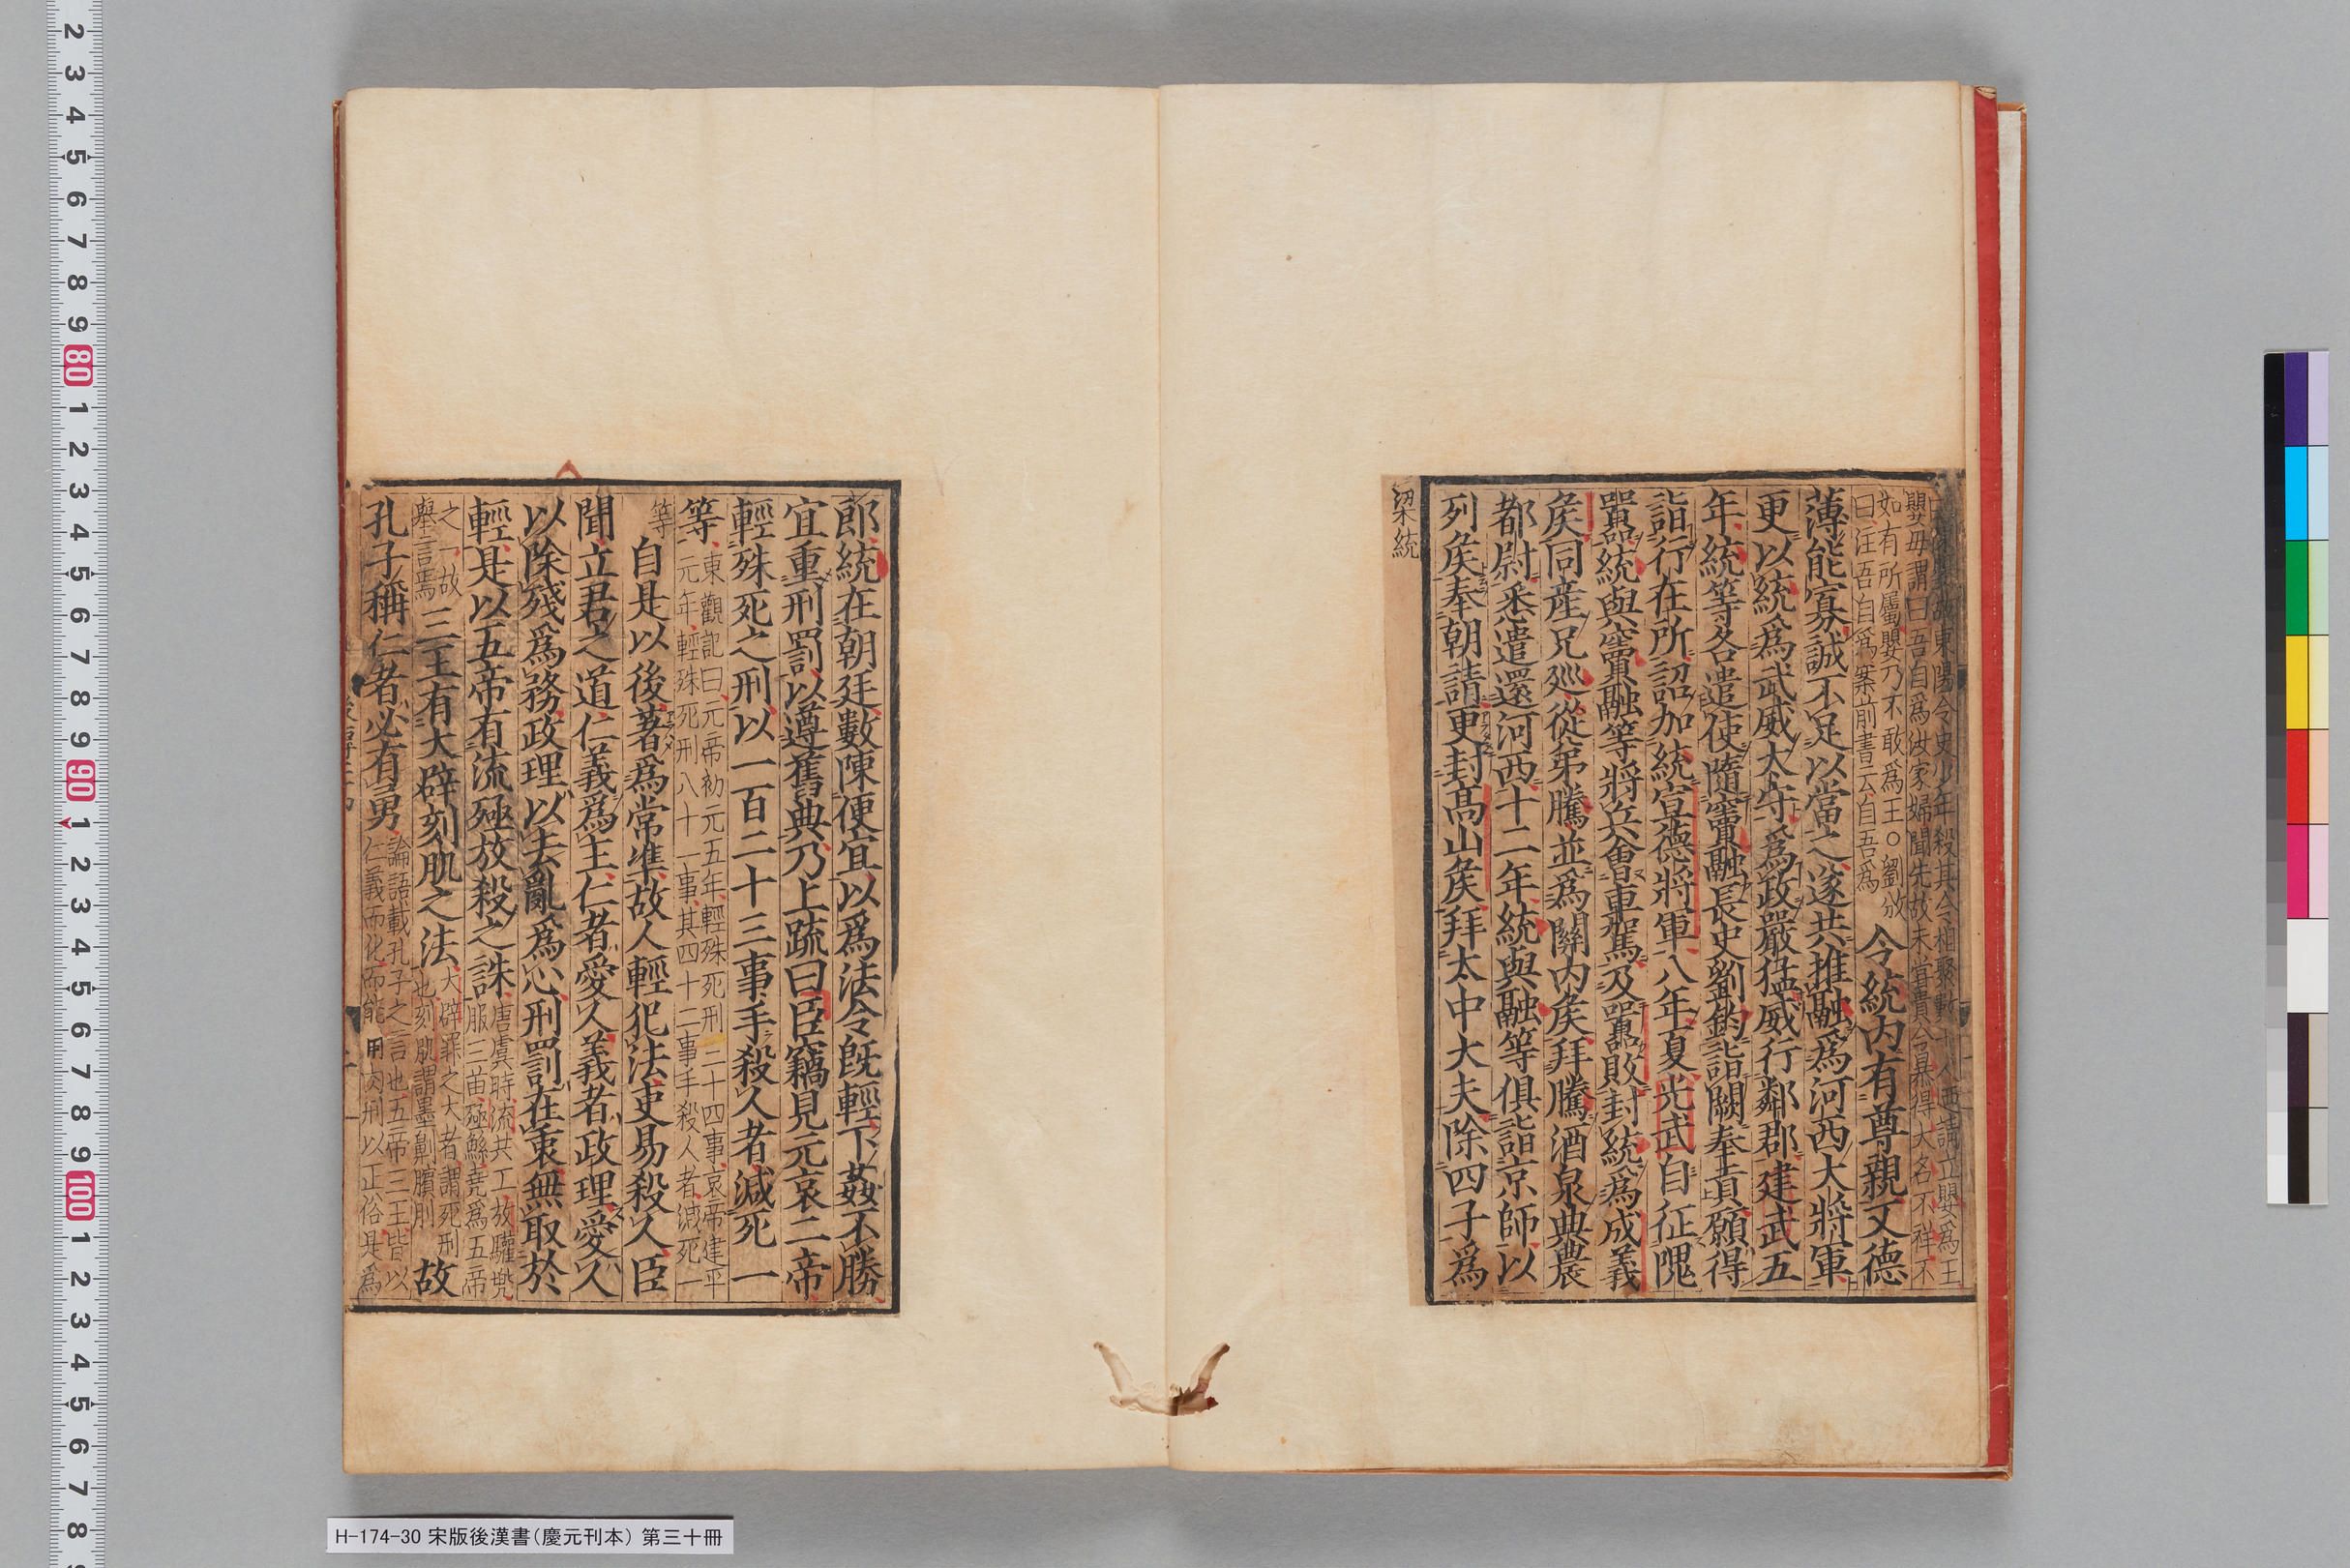 嬰故東陽令史少年殺其令相聚數千人迺請立嬰爲王
嬰母謂曰吾自爲汝家婦聞先故未嘗貴今暴得大名不祥不
如有所屬嬰乃不敢爲王○劉攽
曰注吾自爲案前書云自吾爲
今統内有尊親又德
薄能寡誠不足以當之遂共推融爲河西大將軍
更以統爲武威太守爲政嚴猛威行鄰郡建武五
年統等各遣使隨竇融長史劉鈞詣闕奉貢願得
詣行在所詔加統宣德將軍八年夏光武自征隗
囂統與竇融等將兵會車駕及囂敗封統爲成義
矦同産兄巡從弟騰並爲關内矦拜騰酒泉典農
都尉悉遣還河西十二年統與融等俱詣京師以
列矦奉朝請更封髙山矦拜太中大夫除四子爲
梁統
郎統在朝廷數陳便宜以爲法令旣輕下姦不勝
宜重刑罰以遵舊典乃上疏曰臣竊見元哀二帝
輕殊死之刑以一百二十三事手殺人者減死一
等
東觀記曰元帝初元五年輕殊死刑三十四事哀帝建平
元年輕殊死刑八十一事其四十二事手殺人者減死一
等
自是以後著爲常凖故人輕犯法吏易殺人臣
聞立君之道仁義爲主仁者愛人義者政理愛人
以除殘爲務政理以去亂爲心刑罰在衷無取於
輕是以五帝有流殛放殺之誅
唐虞時流共工放驩兠
服三苗殛鯀堯爲五帝
之一故
舉言焉
三王有大辟刻肌之法
大辟罪之大者謂死刑
也刻肌謂墨劓臏刖
故
孔子稱仁者必有勇
論語載孔子之言也五帝三王皆以
仁義而化而能用肉刑以正俗是爲
H-174-30 宋版後漢書（慶元刊本） 第三十冊